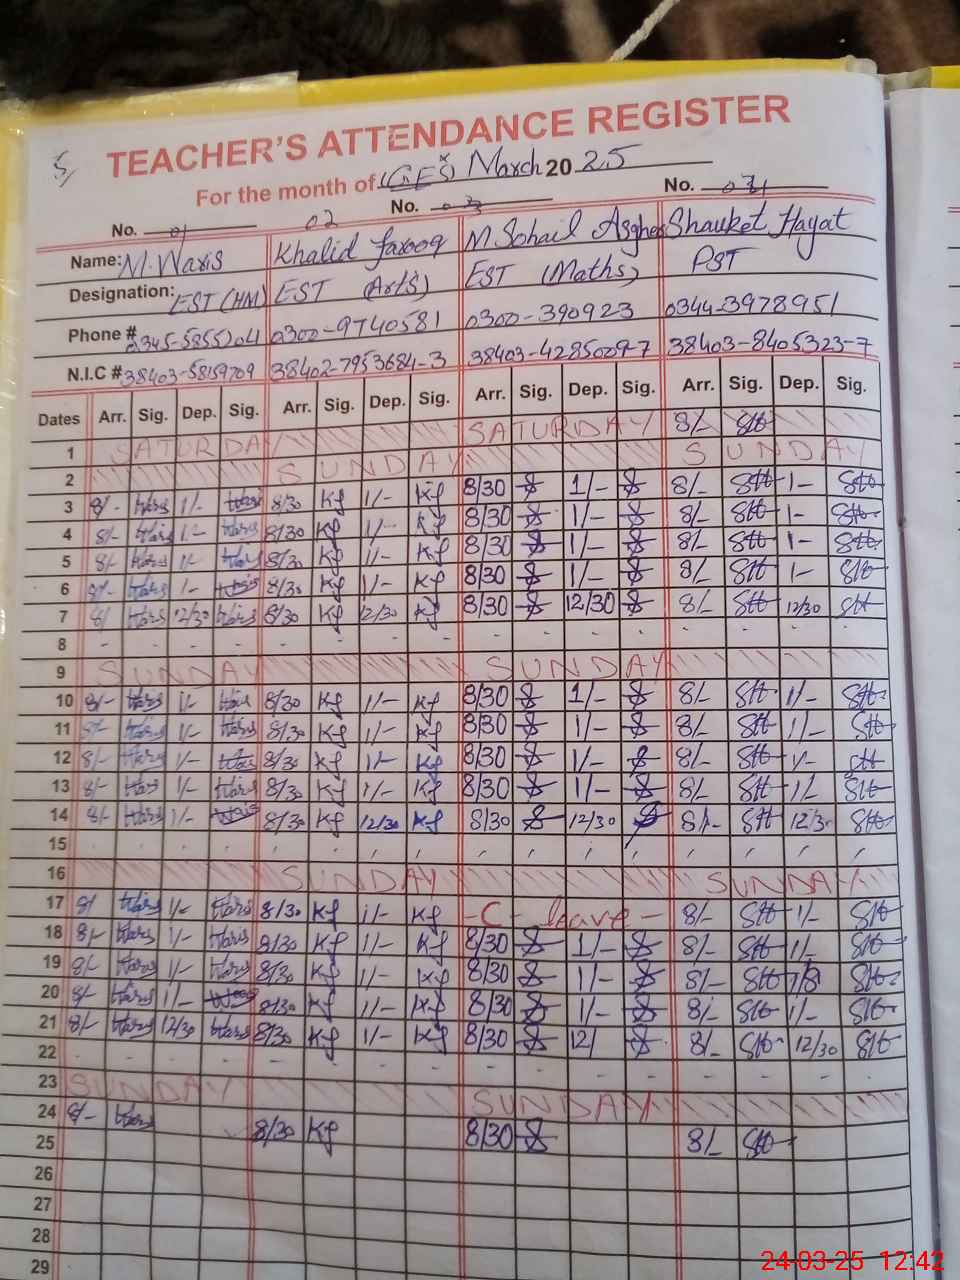 5/
TEACHER'S ATTENDANCE REGISTER
For the month of (GES) March 20 25
No. 01 02 No. 03 No. 04
Name: M. Waris Khalid Farooq M Sohail Asghar Shauket Hayat
Designation: EST (HM) EST (Arts) EST (Maths) PST
Phone # 0345-5855204 0300-9740581 0300-390923 0344-3978951
N.I.C # 38403-58159709 38402-7953684-3 38403-4285009-7 38403-8405323-7
Dates Arr. Sig. Dep. Sig. Arr. Sig. Dep. Sig. Arr. Sig. Dep. Sig. Arr. Sig. Dep. Sig.
1 SATURDAY SATURDAY 8/- Stt
2 SUNDAY SUNDAY
3 8/- Waris 1/- Waris 8/30 Kf 1/- Kf 8/30 1/- 8/- Stt 1- Stt
4 8/- Waris 1/- Waris 8/30 Kf 1/- Kf 8/30 1/- 8/- Stt 1- Stt
5 8/- Waris 1/- Waris 8/30 Kf 1/- Kf 8/30 1/- 8/- Stt 1- Stt
6 8/- Waris 1/- Waris 8/30 Kf 1/- Kf 8/30 1/- 8/- Stt 1- Stt
7 8/ Waris 12/30 Waris 8/30 Kf 12/30 Kf 8/30 12/30 8/- Stt 12/30 Stt
8
9 SUNDAY SUNDAY
10 8/- Waris 1/- Waris 8/30 Kf 1/- Kf 8/30 1/- 8/- Stt 1/- Stt
11 8/- Waris 1/- Waris 8/30 Kf 1/- Kf 8/30 1/- 8/- Stt 1/- Stt
12 8/- Waris 1/- Waris 8/30 Kf 1/- Kf 8/30 1/- 8/- Stt 1/- Stt
13 8/- Waris 1/- Waris 8/30 Kf 1/- Kf 8/30 1/- 8/- Stt 1/ Stt
14 8/- Waris 1/- Waris 8/30 Kf 12/30 Kf 8/30 12/30 8/- Stt 12/30 Stt
15
16 SUNDAY SUNDAY
17 8/ Waris 1/- Waris 8/30 Kf 1/- Kf -C- leave- 8/- Stt 1/- Stt
18 8/- Waris 1/- Waris 8/30 Kf 1/- Kf 8/30 1/- 8/- Stt 1/- Stt
19 8/- Waris 1/- Waris 8/30 Kf 1/- Kf 8/30 1/- 8/- Stt Stt
20 8/- Waris 1/- Waris 8/30 Kf 1/- Kf 8/30 1/- 8/- Stt 1/- Stt
21 8/- Waris 12/30 Waris 8/30 Kf 1/- Kf 8/30 12/ 8/- Stt 12/30 Stt
22
23 SUNDAY SUNDAY
24 8/- Waris 8/30 Kf 8/30 8/- Stt
25
26
27
28
29
24-03-25 12:42